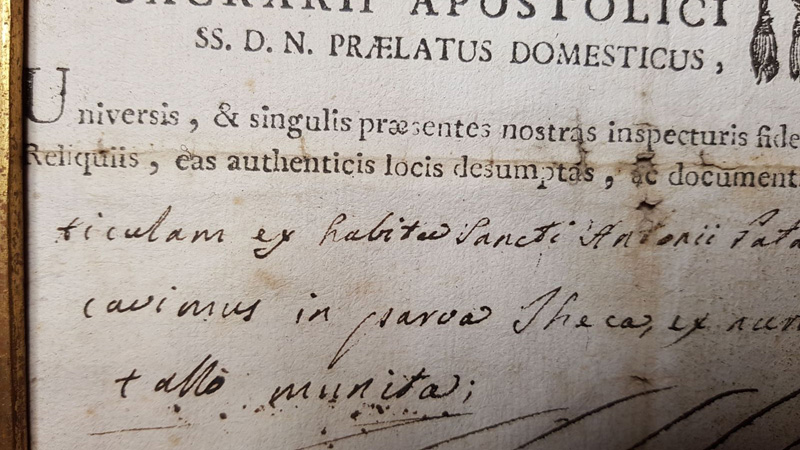 SACRARII APOSTOLICI
SS. D. N. PRÆLATUS DOMESTICUS,
Universis, & singulis præsentes nostras inspecturis fide
Reliquiis, eas authenticis locis desumptas, ac document
ticulam ex habitu Sancti Antonii Pata
cavimus in parva Theca, ex
tallo munita;